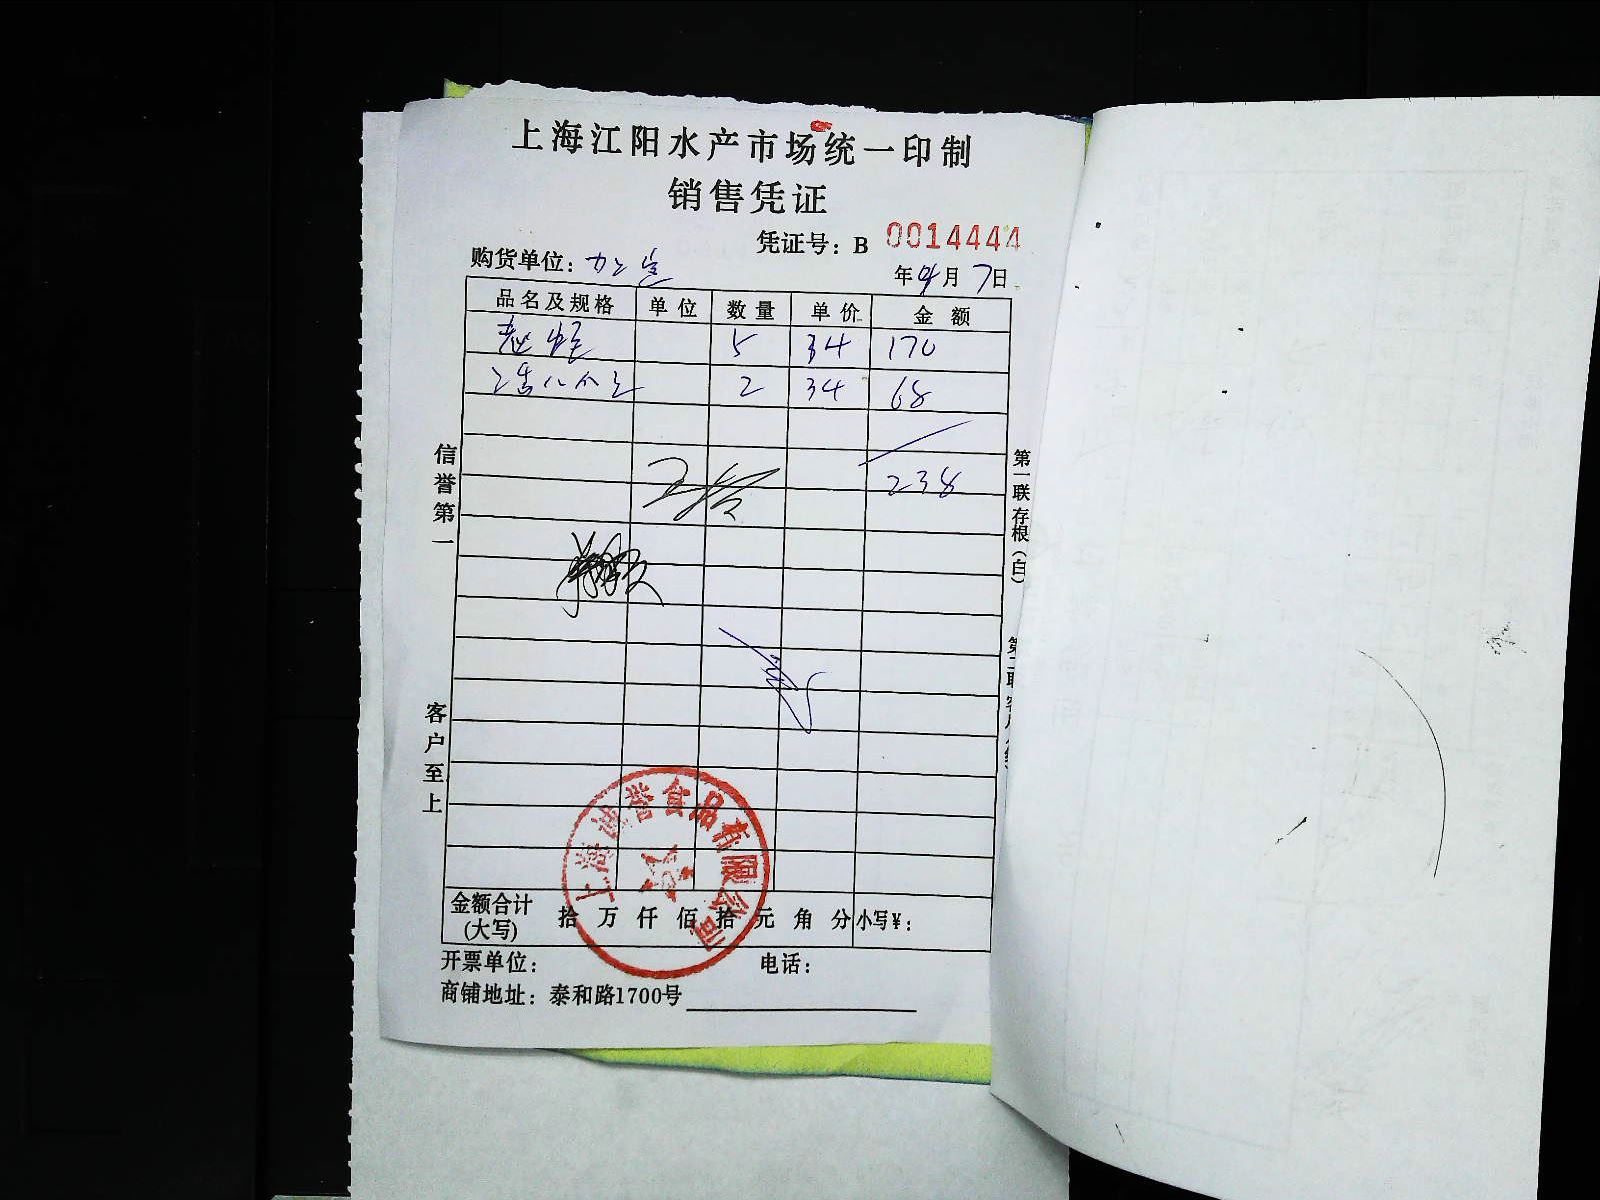 上海江阳水产市场统一印制
销售凭证
凭证号：B 0014444
购货单位：
年 月 7日
品名及规格 单位 数量 单价 金额
5 34 170
2 34 68
238
信誉第一
客户至上
第一联存根（白）
上海诚誉食品有限公司
金额合计（大写） 拾 万 仟 佰 拾 元 角 分 小写¥：
开票单位： 电话：
商铺地址：泰和路1700号